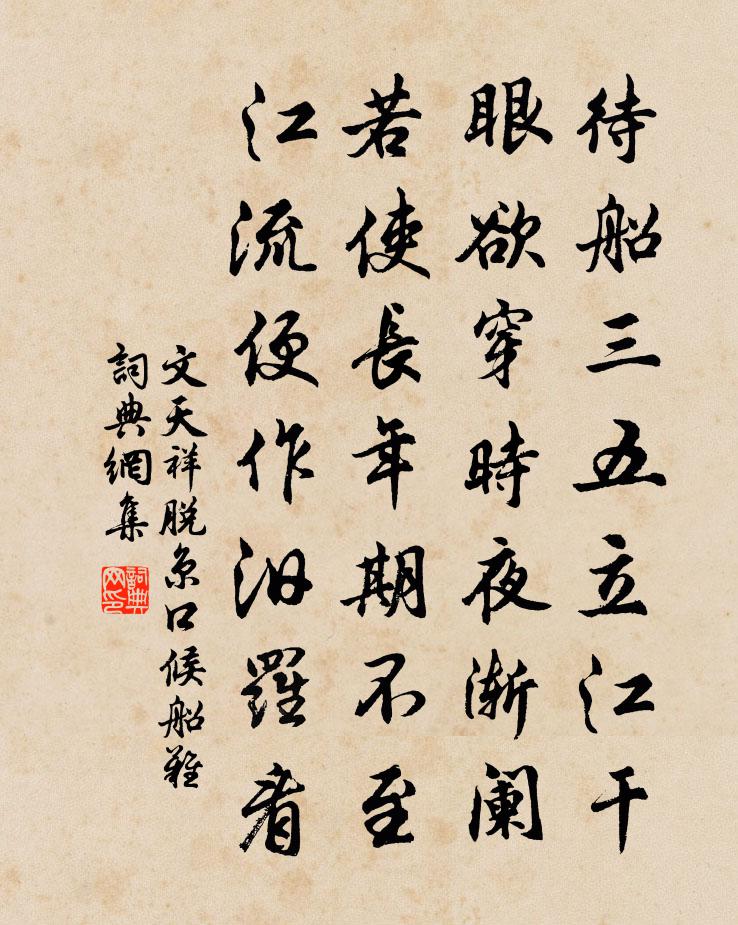 待船三五立江干
眼欲穿時夜渐阑
若使長年期不至
江流便作汨羅看
文天祥脱京口候船難
詞典網集
詞典网印